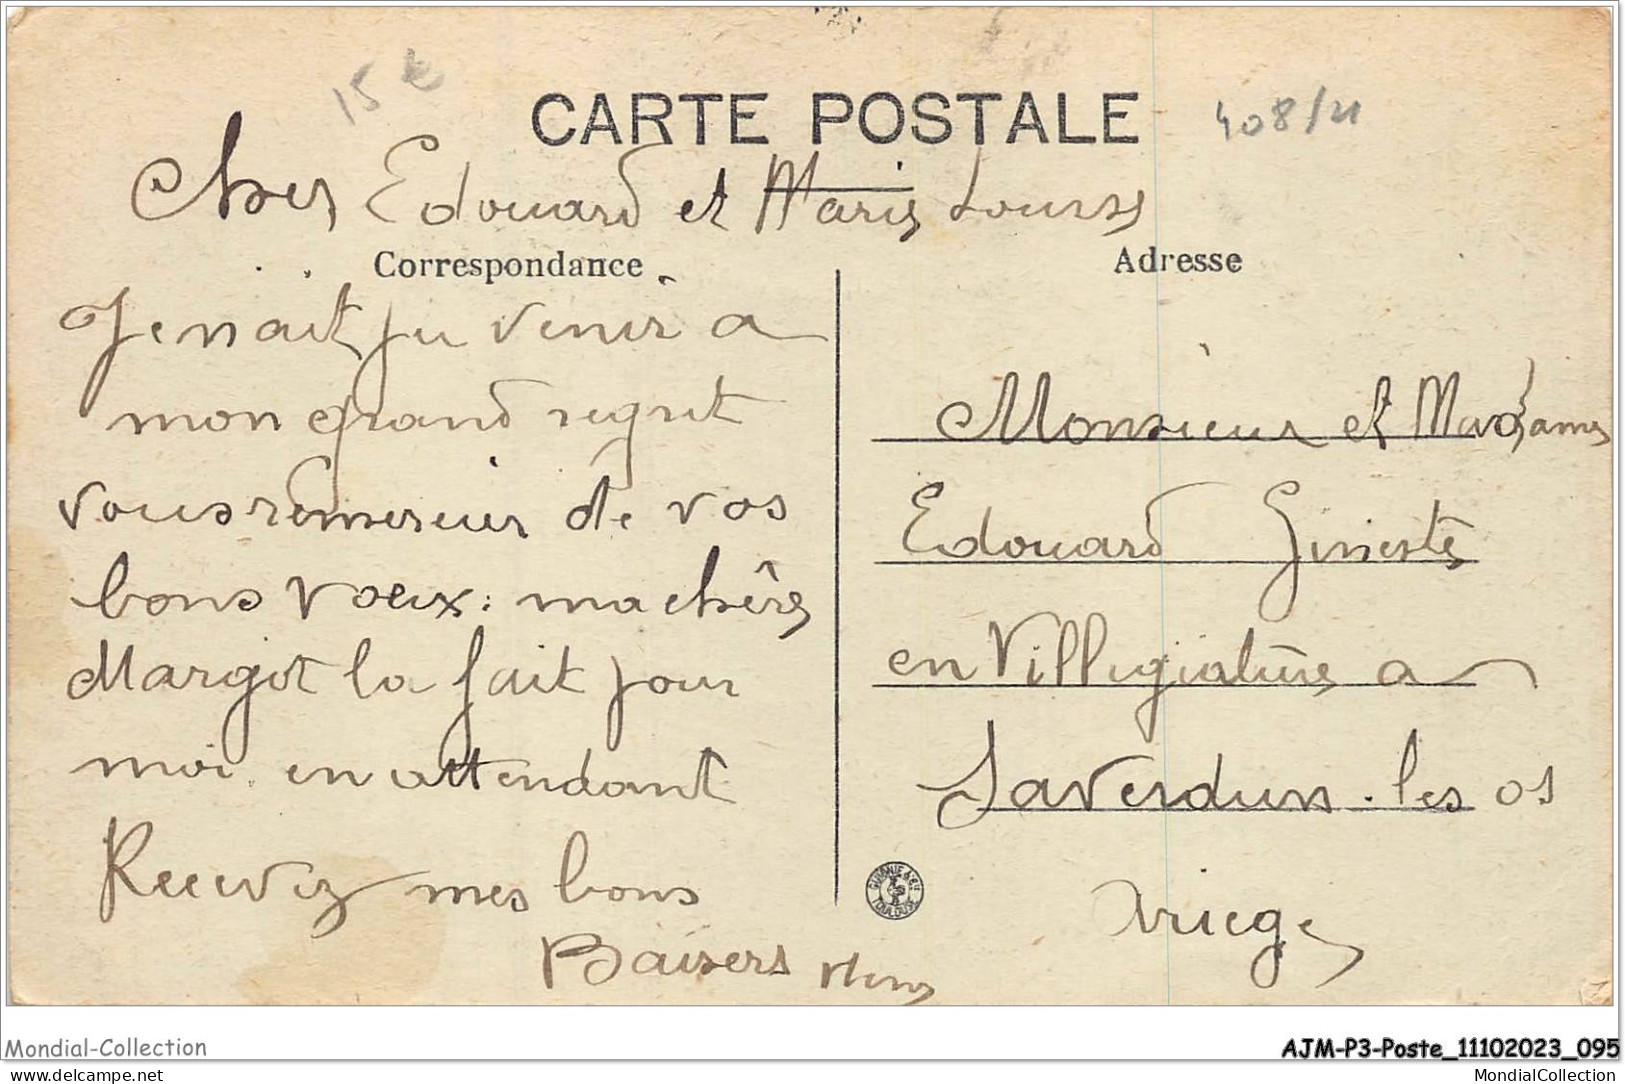 15 €
CARTE POSTALE
408/21
Cher Edouard et Marie Louise
Correspondance
Je nait pu venir a
mon grand regret
vous remercier de vos
bons voeux. ma chère
Margot la fait pour
moi. en attendant
Recevez mes bons
Baisers
Adresse
Monsieur et Madame
Edouard Gineste
en Villegiature a
Saverdun. les os
Ariege
TOULOUSE
Mondial-Collection
AJM-P3-Poste_11102023_095
www.delcampe.net
MondialCollection